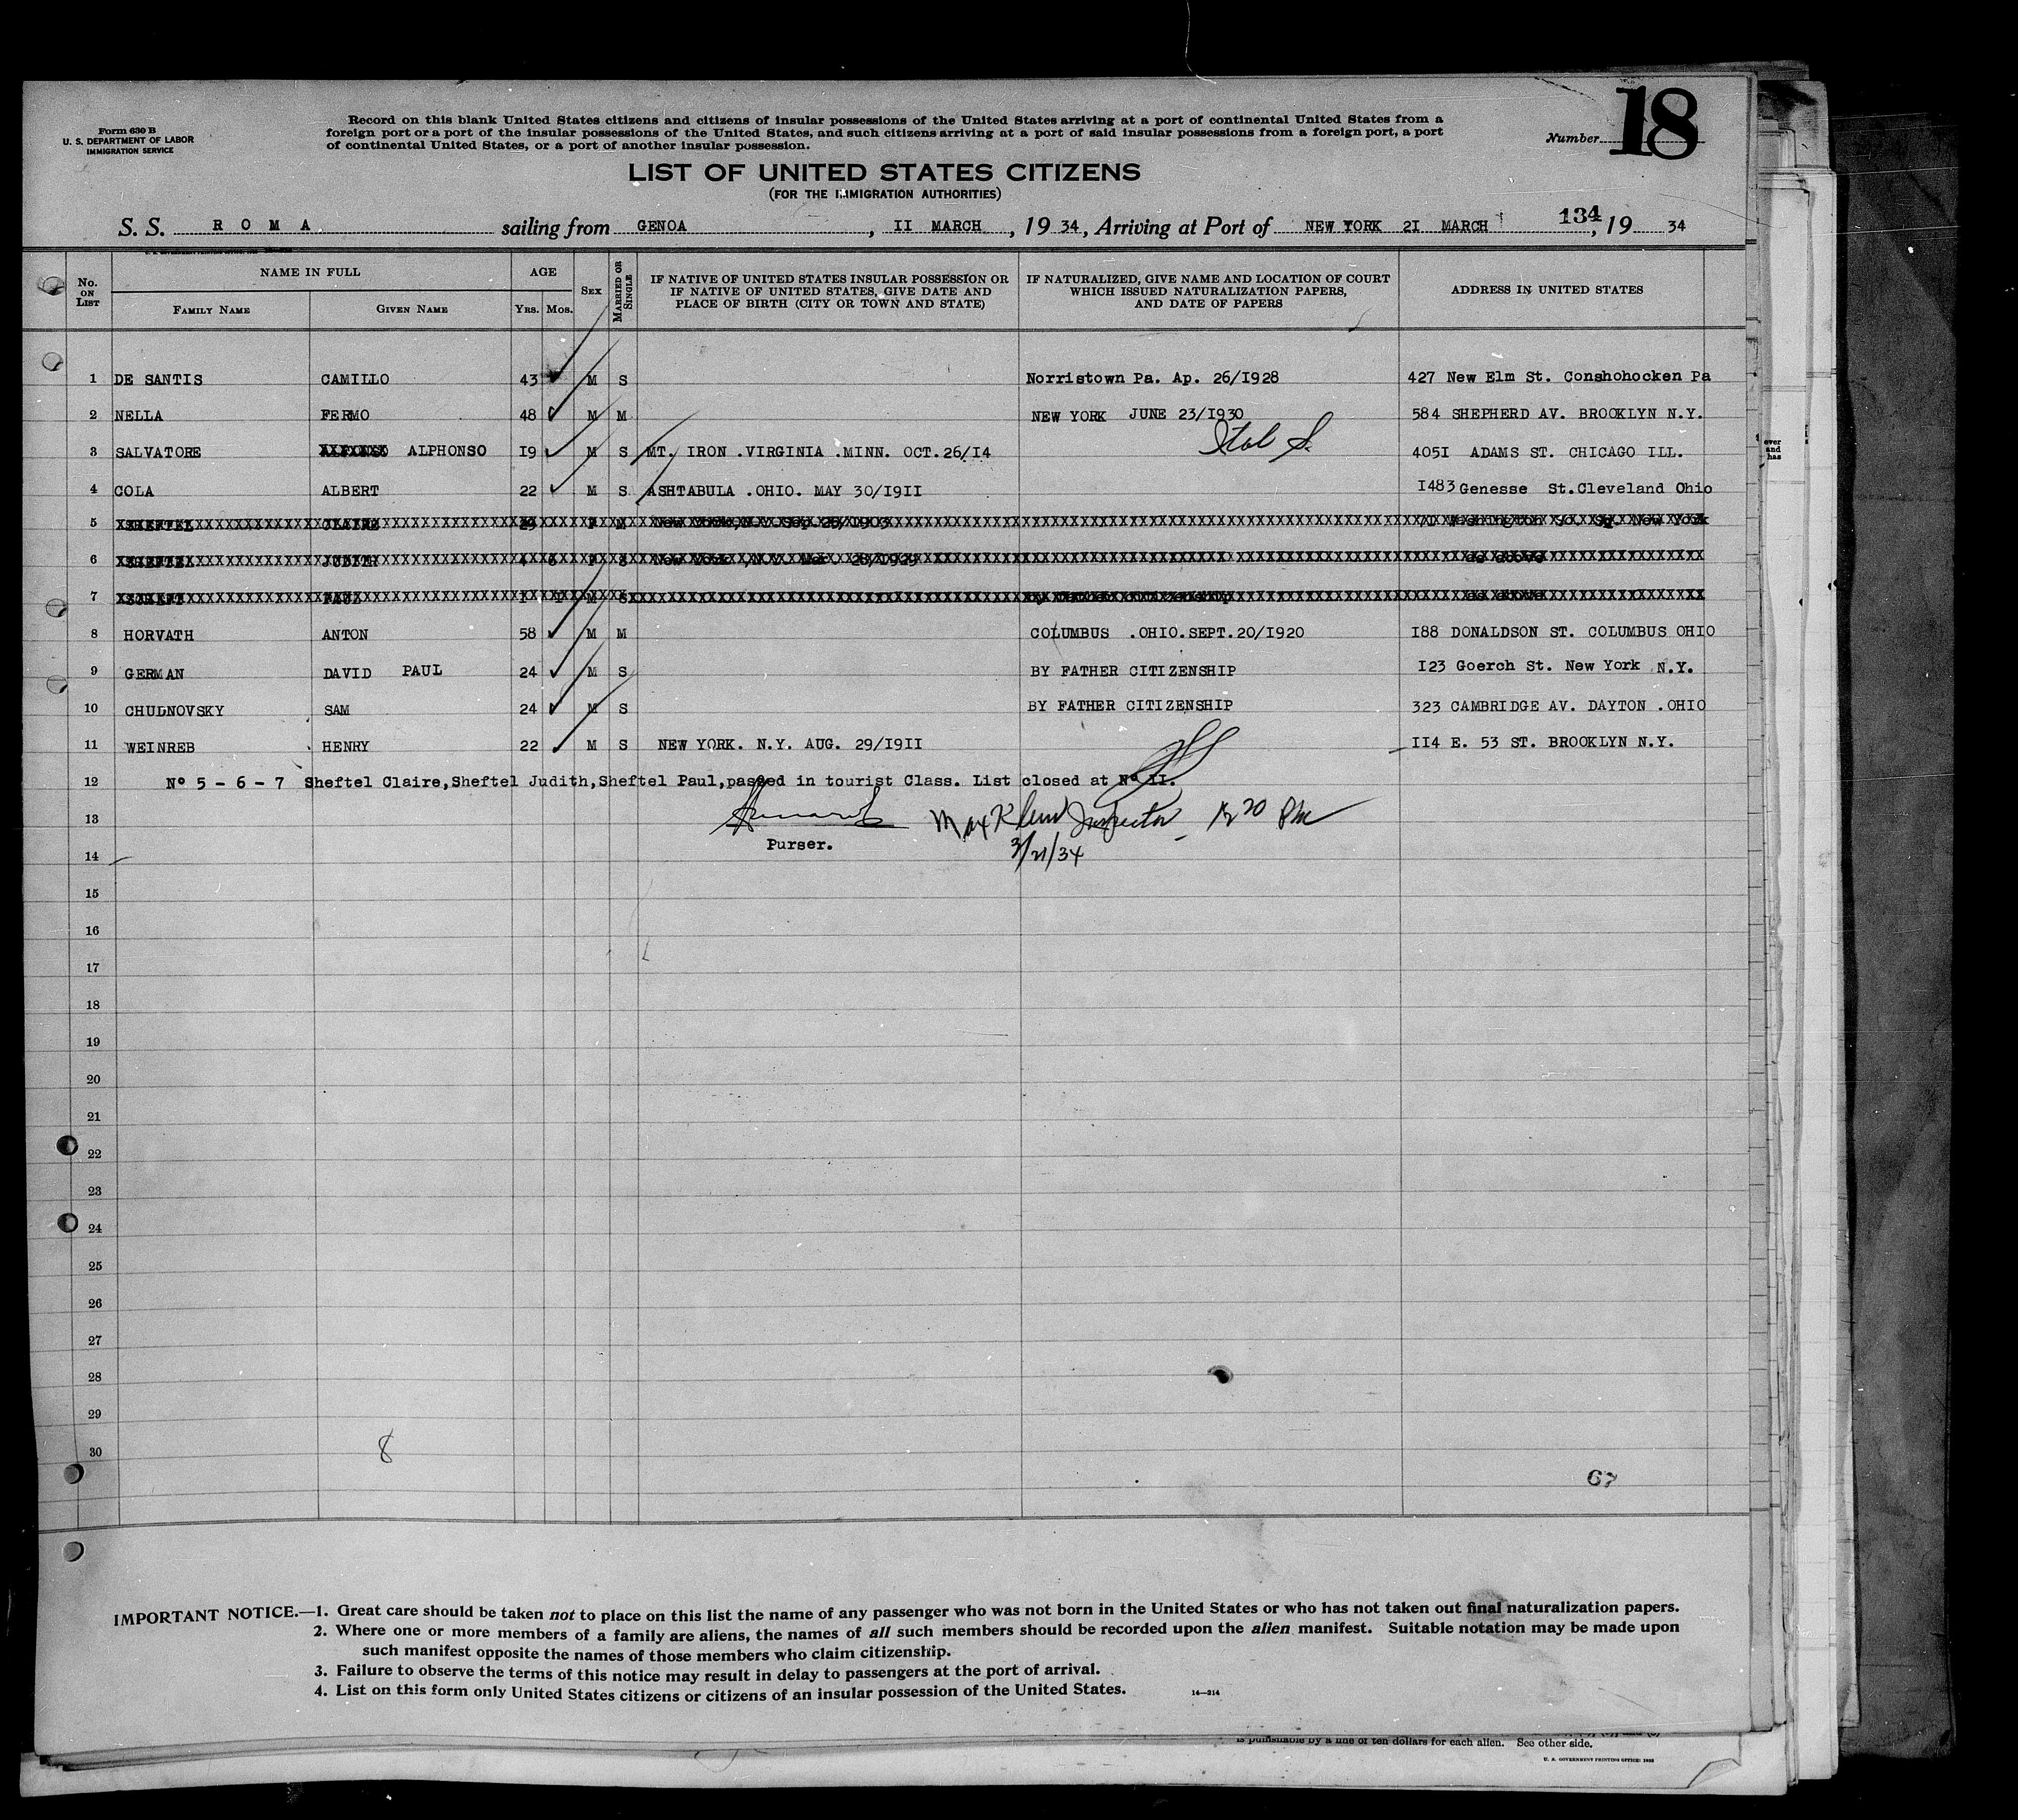 Form 630 B
U. S. DEPARTMENT OF LABOR
IMMIGRATION SERVICE
Record on this blank United States citizens and citizens of insular possessions of the United States arriving at a port of continental United States from a
foreign port or a port of the insular possessions of the United States, and such citizens arriving at a port of said insular possessions from a foreign port, a port
of continental United States, or a port of another insular possession.
Number 18
LIST OF UNITED STATES CITIZENS
(FOR THE IMMIGRATION AUTHORITIES)
S. S. R O M A sailing from GENOA, II MARCH, 19 34, Arriving at Port of NEW YORK 2I MARCH 134, 19 34
No. ON LIST NAME IN FULL AGE SEX MARRIED OR SINGLE IF NATIVE OF UNITED STATES INSULAR POSSESSION OR IF NATIVE OF UNITED STATES, GIVE DATE AND PLACE OF BIRTH (CITY OR TOWN AND STATE) IF NATURALIZED, GIVE NAME AND LOCATION OF COURT WHICH ISSUED NATURALIZATION PAPERS, AND DATE OF PAPERS ADDRESS IN UNITED STATES
FAMILY NAME GIVEN NAME YRS. MOS.
1 DE SANTIS CAMILLO 43 M S Norristown Pa. Ap. 26/I928 427 New Elm St. Conshohocken Pa
2 NELLA FERMO 48 M M NEW YORK JUNE 23/I930 584 SHEPHERD AV. BROOKLYN N.Y.
3 SALVATORE ALPHONSO I9 M S MT. IRON .VIRGINIA .MINN. OCT.26/I4 Ital S. 405I ADAMS ST. CHICAGO ILL.
4 COLA ALBERT 22 M S ASHTABULA .OHIO. MAY 30/I9II I483 Genesse St.Cleveland Ohio
5 SHEFTEL CLAIRE F M New York, N.Y. Sep 7I Washington So. Sq. New York
6 SHEFTEL JUDITH 4 F S New York ,N.Y. Mar. 28/I929 as above
7 PAUL I M S By father citizenship as above
8 HORVATH ANTON 58 M M COLUMBUS .OHIO.SEPT.20/I920 I88 DONALDSON ST. COLUMBUS OHIO
9 GERMAN DAVID PAUL 24 M S BY FATHER CITIZENSHIP I23 Goerch St. New York N.Y.
10 CHULNOVSKY SAM 24 M S BY FATHER CITIZENSHIP 323 CAMBRIDGE AV. DAYTON .OHIO
11 WEINREB HENRY 22 M S NEW YORK. N.Y. AUG. 29/I9II II4 E. 53 ST. BROOKLYN N.Y.
12 Nº 5 - 6 - 7 Sheftel Claire,Sheftel Judith,Sheftel Paul,passed in tourist Class. List closed at Nº II.
13 Max Klein Inspector 12 20 PM
Purser. 3/21/34
14
15
16
17
18
19
20
21
22
23
24
25
26
27
28
29
30
8
67
IMPORTANT NOTICE.—1. Great care should be taken not to place on this list the name of any passenger who was not born in the United States or who has not taken out final naturalization papers.
2. Where one or more members of a family are aliens, the names of all such members should be recorded upon the alien manifest. Suitable notation may be made upon
such manifest opposite the names of those members who claim citizenship.
3. Failure to observe the terms of this notice may result in delay to passengers at the port of arrival.
4. List on this form only United States citizens or citizens of an insular possession of the United States.
14—214
is punishable by a fine of ten dollars for each alien. See other side.
U. S. GOVERNMENT PRINTING OFFICE: 1932
ever
and
has